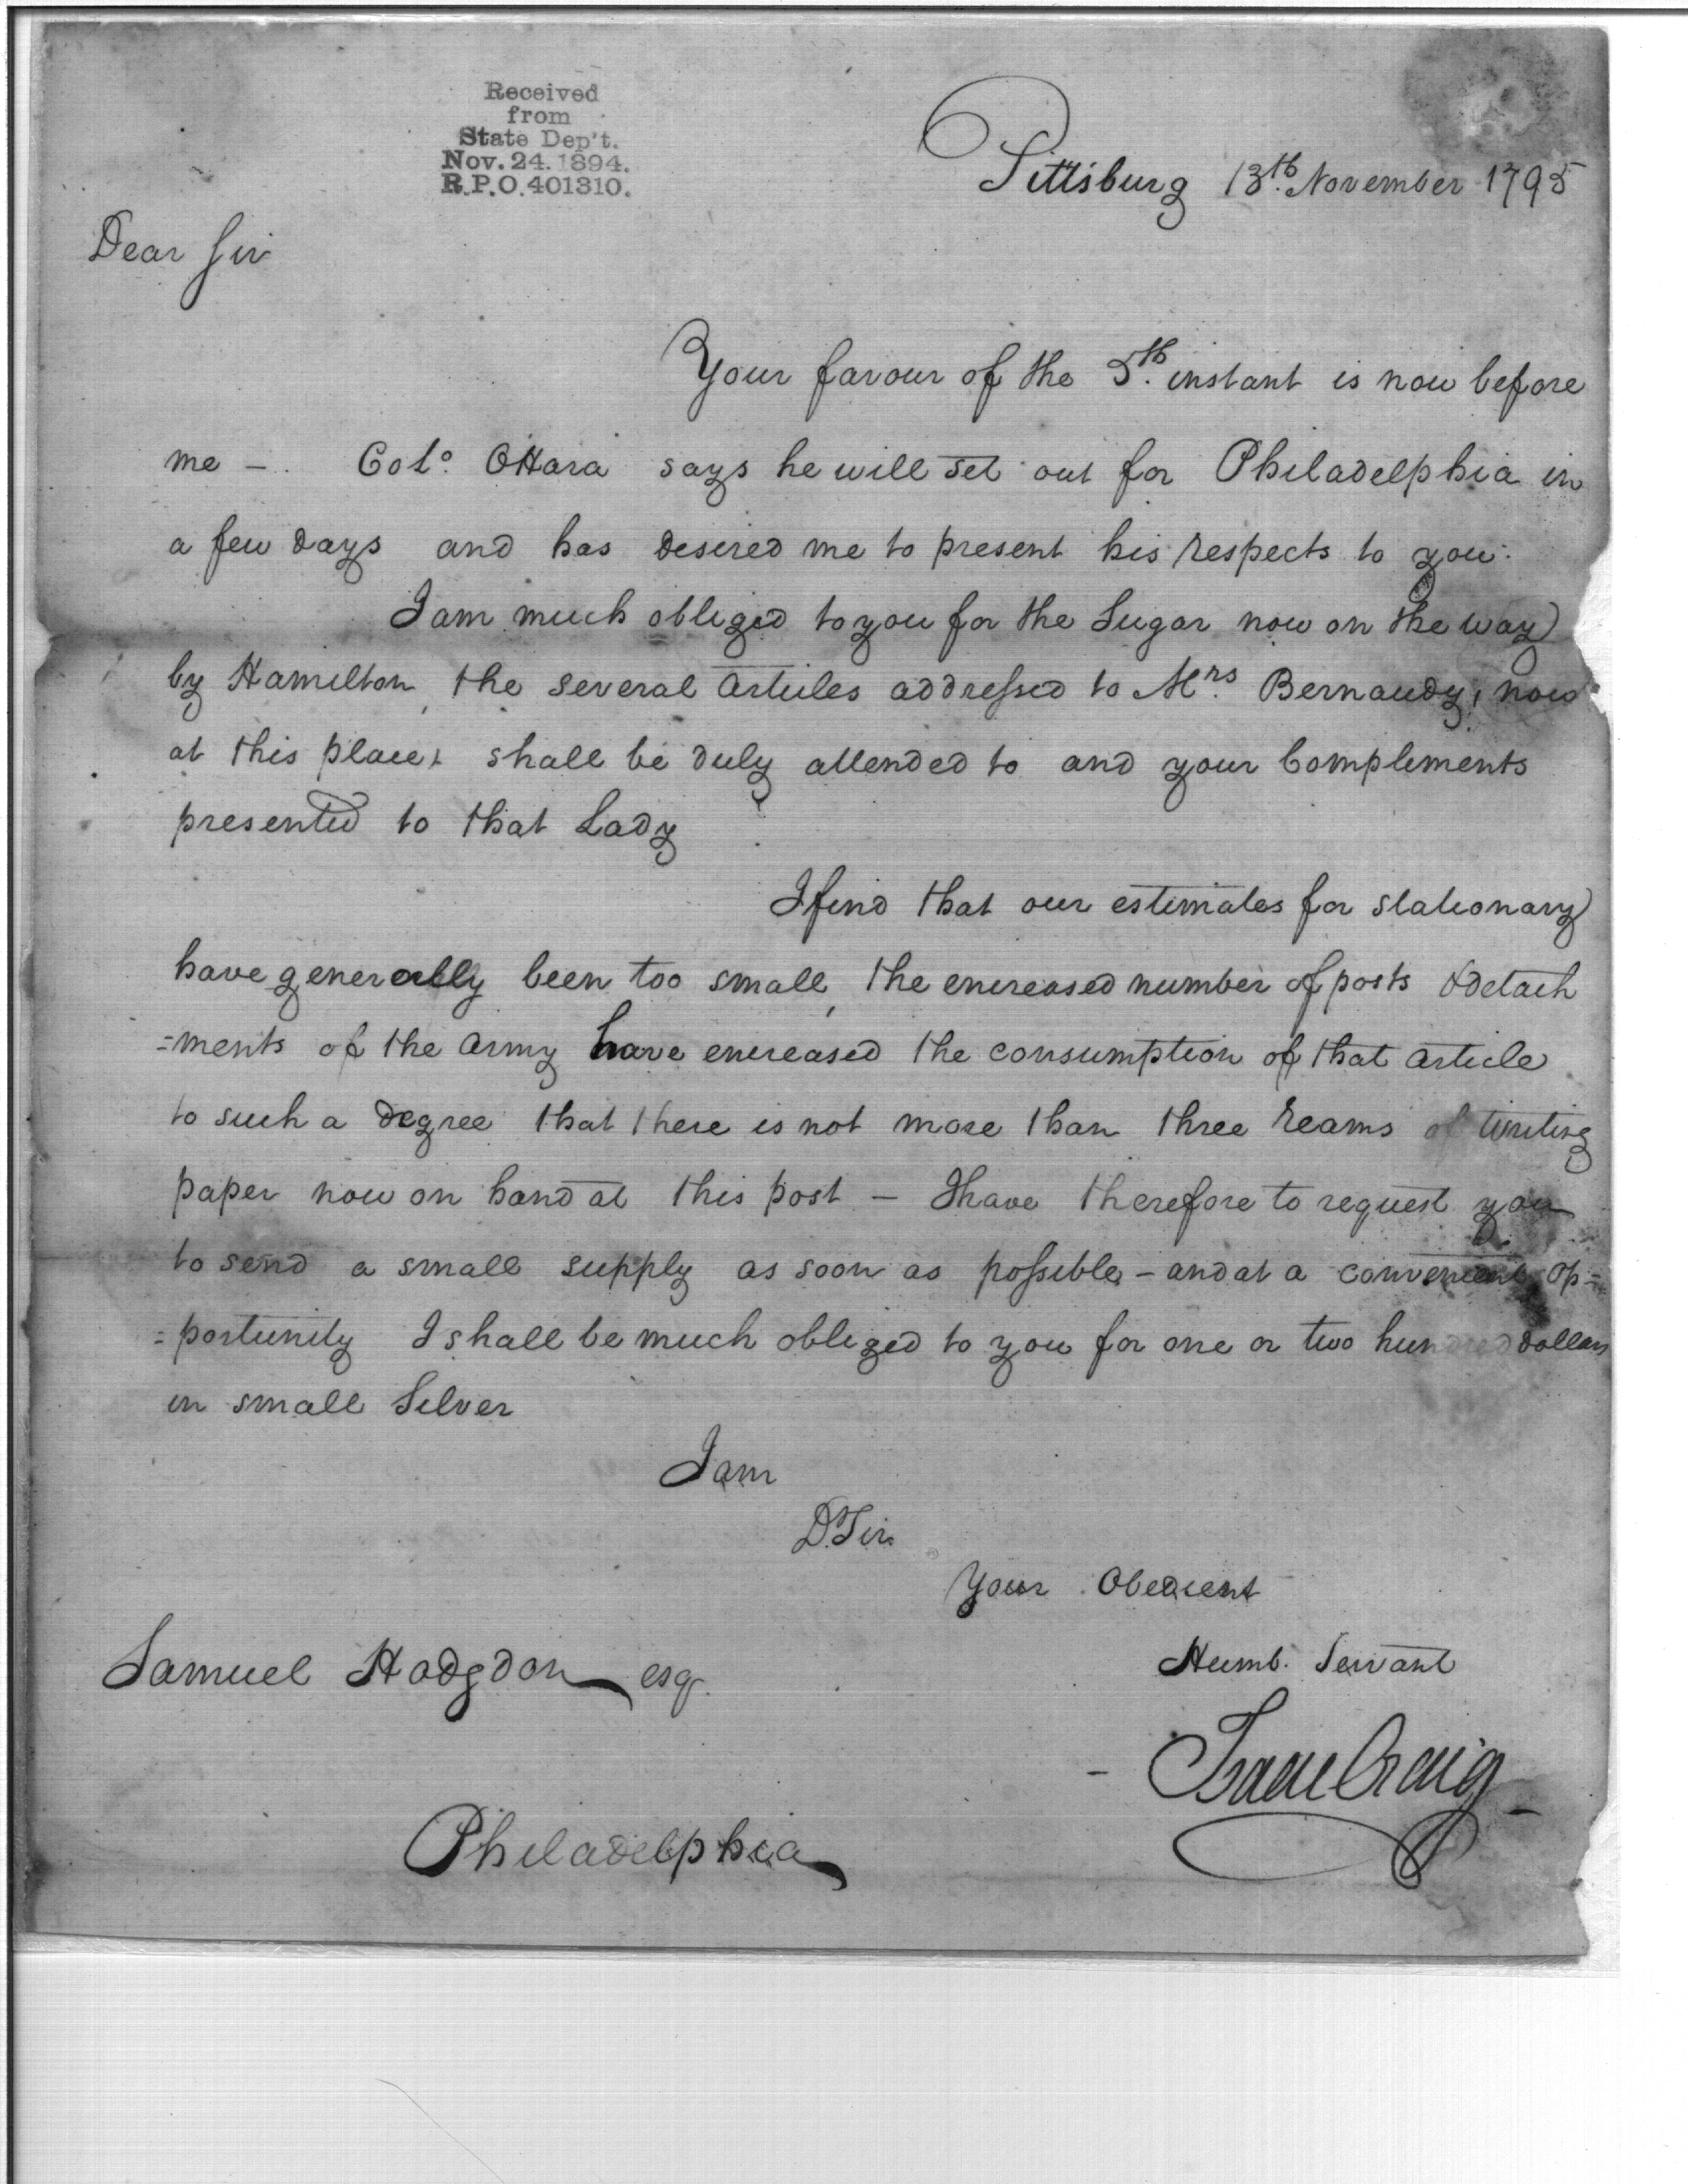 Received
from
State Dep't.
Nov. 24. 1894.
R.P.O. 401310.
Pittsburg 13th. November 1795
Dear Sir
Your favour of the 5th. instant is now before
me - Colo. OHara says he will set out for Philadelphia in
a few days and has desired me to present his respects to you.
I am much obliged to you for the Sugar now on the way
by Hamilton, the several Articles addressed to Mrs. Bernaudy, now
at this place, shall be duly attended to and your Complements
presented to that Lady
I find that our estimates for stationary
have generally been too small, the encreased number of posts & detach
=ments of the Army have encreased the consumption of that article
to such a degree that there is not more than three reams of writing
paper now on hand at this post - I have therefore to request you
to send a small supply as soon as possible, - and at a convenient op=
=portunity I shall be much obliged to you for one or two hundred dollars
in small Silver
I am
D. Sir
Your Obedient
Humb. Servant
Samuel Hodgdon esqr.
Isaac Craig
Philadelphia